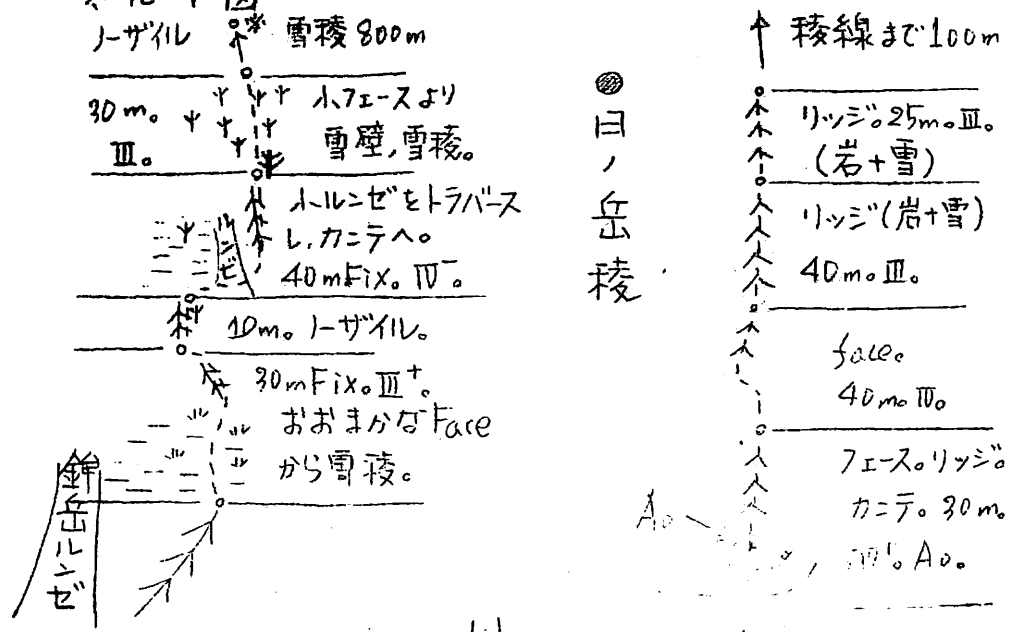 ノーザイル
雪稜 800m
30m。
III。
小フェースより
雪壁,雪稜。
小ルンゼをトラバース
し,カンテへ。
40mFix。IV⁻。
ルンゼ
10m。ノーザイル。
30mFix。III⁺。
おおまかなFace
から雪稜。
鉾岳ルンゼ
日ノ岳稜
稜線まで100m
リッジ。25m。III。
(岩+雪)
リッジ(岩+雪)
40m。III。
face。
40m。IV。
フェース。リッジ。
カンテ。30m。
A₀。
A₀